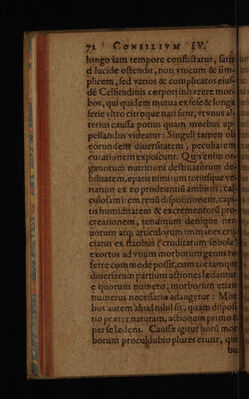 72 CONSILIVM IV.
longo iam tempore conflictatur, satis
è lucide ostendit, non vnicum & sim-
plicem, sed varios & complicatos eius
dē Celsitudinis corpori inhærere mor-
bos, qui quidem mutua ex sese & longa
serie vltro citroque nati sunt, vt vnus al-
terius caussa potius quam morbus ap-
pellandus videatur: Singuli tamen ob
eorundem diuersitatem, peculiarem
curationem exposcunt. Quis enim or-
ganorum nutritioni destinatorum de-
bilitatem, epatis nimirum totiusque ve-
narum ex eo prodeuntis ambitus, cal-
culosam item renū dispositionem, capi-
tis humiditatem & excrementorū pro-
creationem, tendinum denique ner-
uorum atq; articulorum immanes cru-
ciatus ex flatibus & cruditatum sobole
exortos ad vnum morborum genus re-
ferre commode possit, cum tot tamque
diuersarum partium actiones lædantur
e quorum numero, morborum etiam
numerus necessario adaugetur: Mor
bus autem aliud nihil sit, quam disposi
tio præter naturam, actionem primo &
per se lædens. Caussæ igitur horū mor
borum proculdubio plures erunt, qui
bu